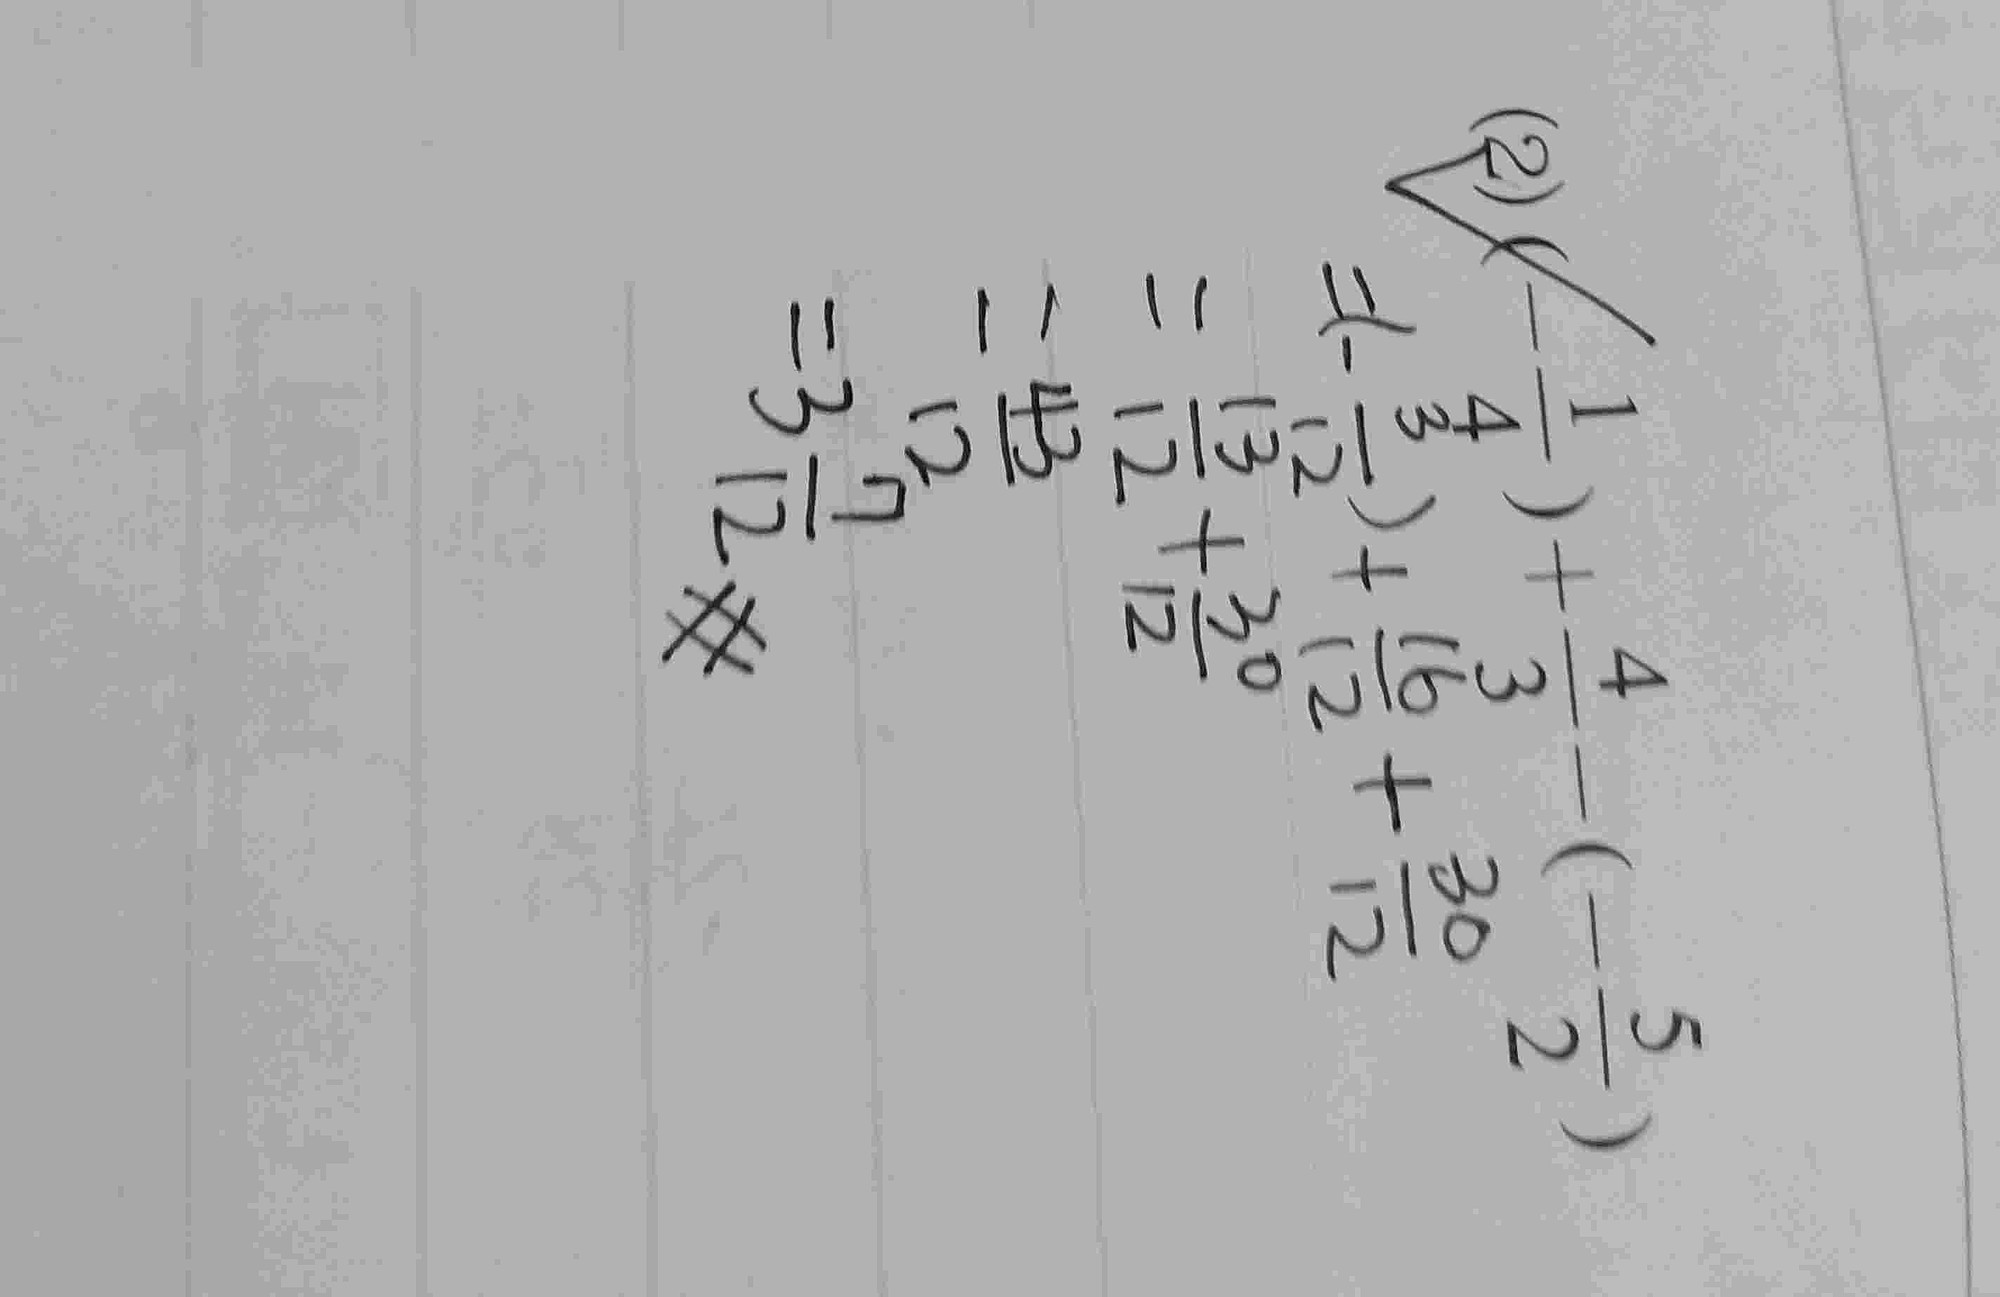 (2) (-1/4) + 4/3 - (-5/2)
= (-3/12) + 16/12 + 30/12
= 13/12 + 30/12
= 43/12
= 3 7/12 #